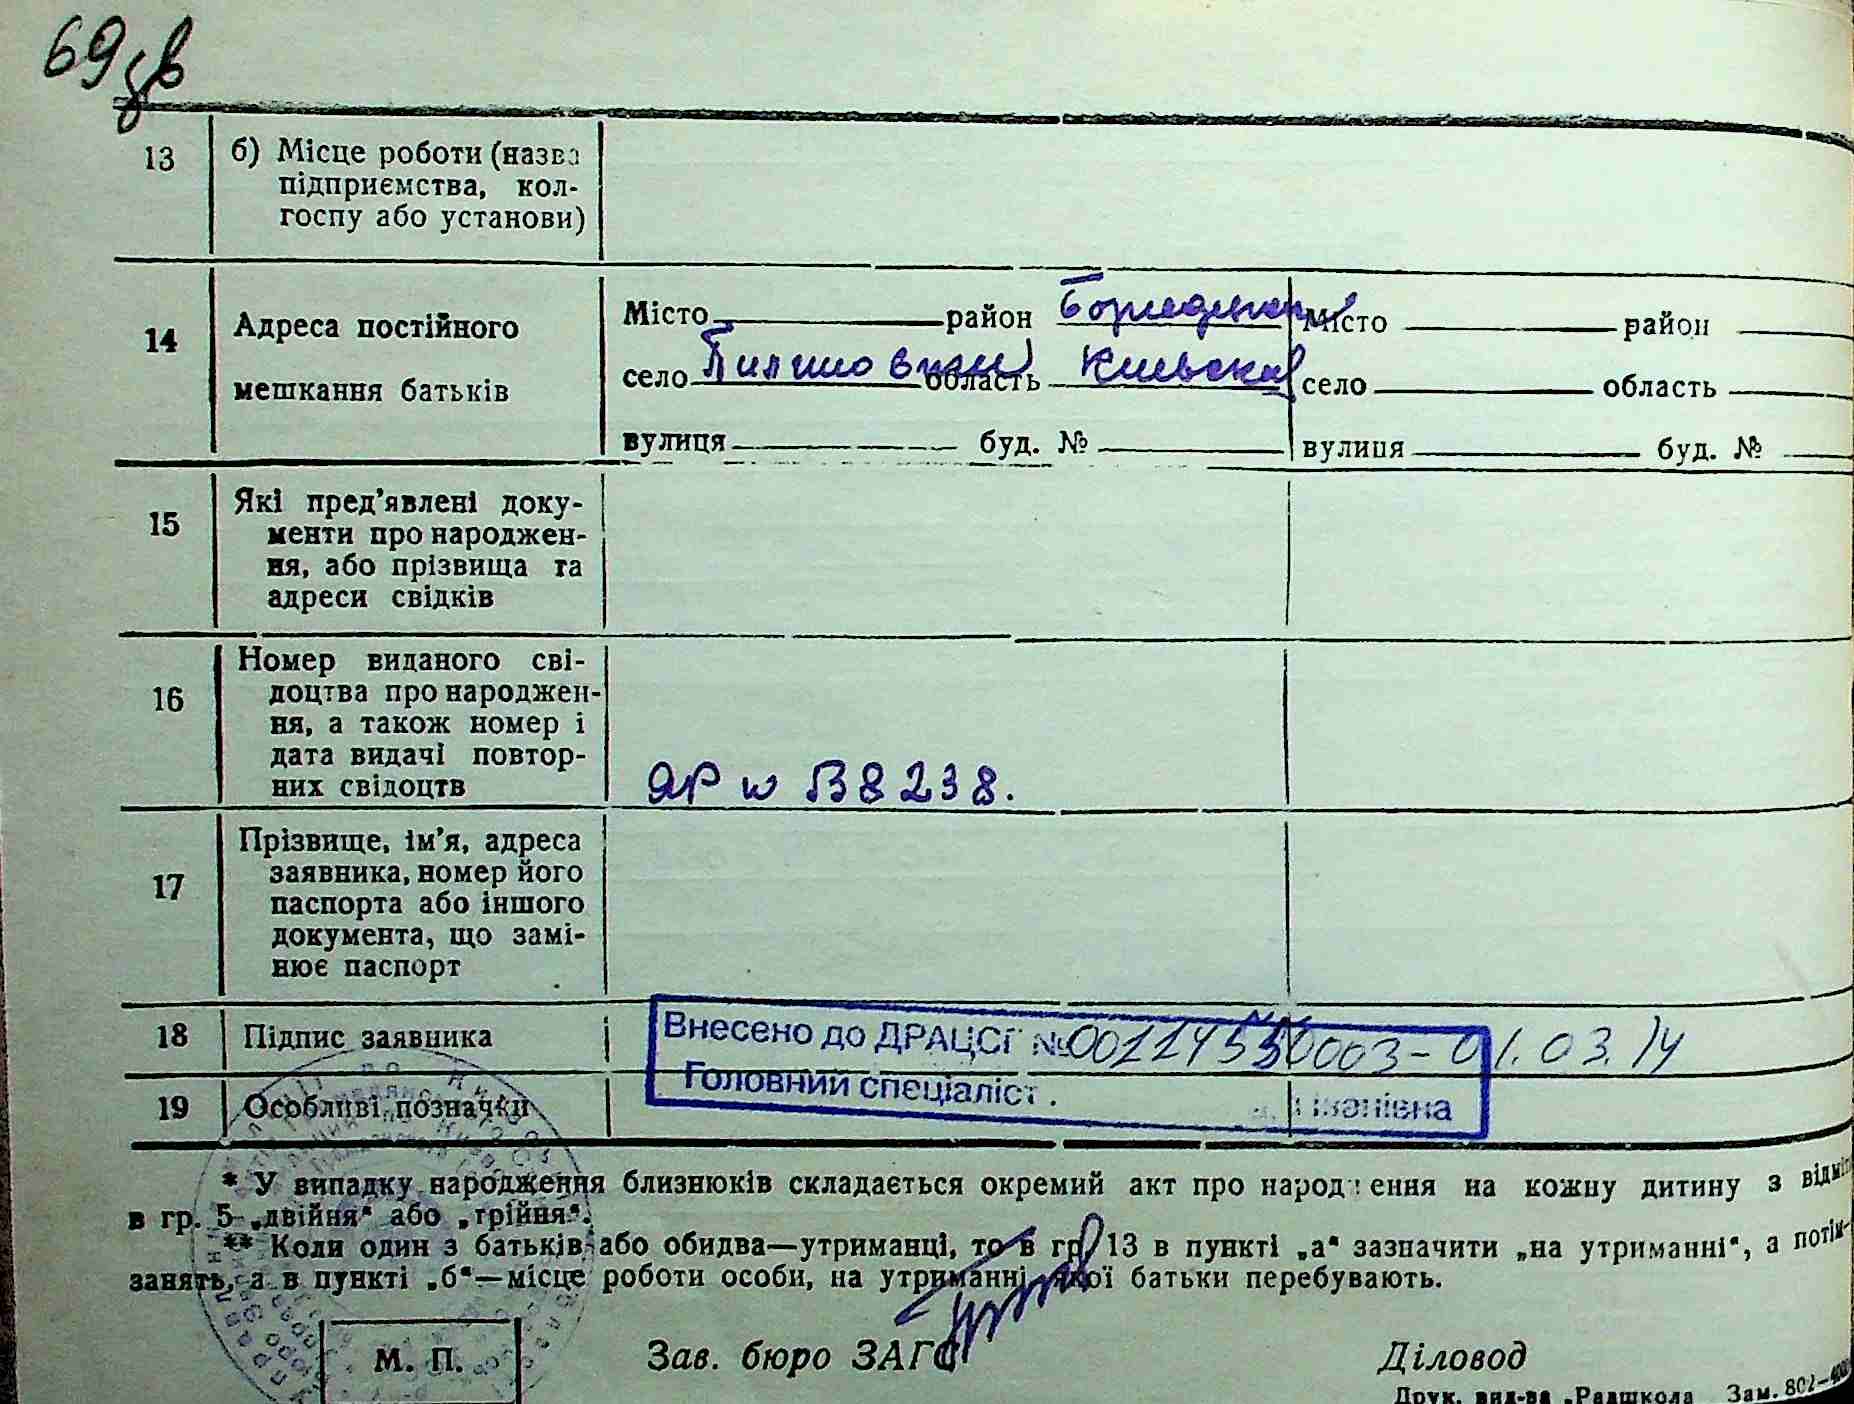 69 зв
13
б) Місце роботи (назва
підприємства, кол-
госпу або установи)
14
Адреса постійного
мешкання батьків
Місто район
село область Киевская
вулиця буд. №
Місто район
село область
вулиця буд. №
15
Які пред'явлені доку-
менти про народжен-
ня, або прізвища та
адреси свідків
16
Номер виданого сві-
доцтва про народжен-
ня, а також номер і
дата видачі повтор-
них свідоцтв
17
Прізвище, ім'я, адреса
заявника, номер його
паспорта або іншого
документа, що замі-
нює паспорт
18
Підпис заявника
Внесено до ДРАЦСГ № 01.03.14
Головний спеціаліст
19
Особливі позначки
* У випадку народження близнюків складається окремий акт про народження на кожну дитину з
в гр. 5 „двійня“ або „трійня“.
** Коли один з батьків або обидва—утриманці, то в гр. 13 в пункті „а“ зазначити „на утриманні“, а потім—
занять, а в пункті „б“—місце роботи особи, на утриманні якої батьки перебувають.
М. П.
Зав. бюро ЗАГС
Діловод
Друк. вид-ва „Радшкола Зам. 802—